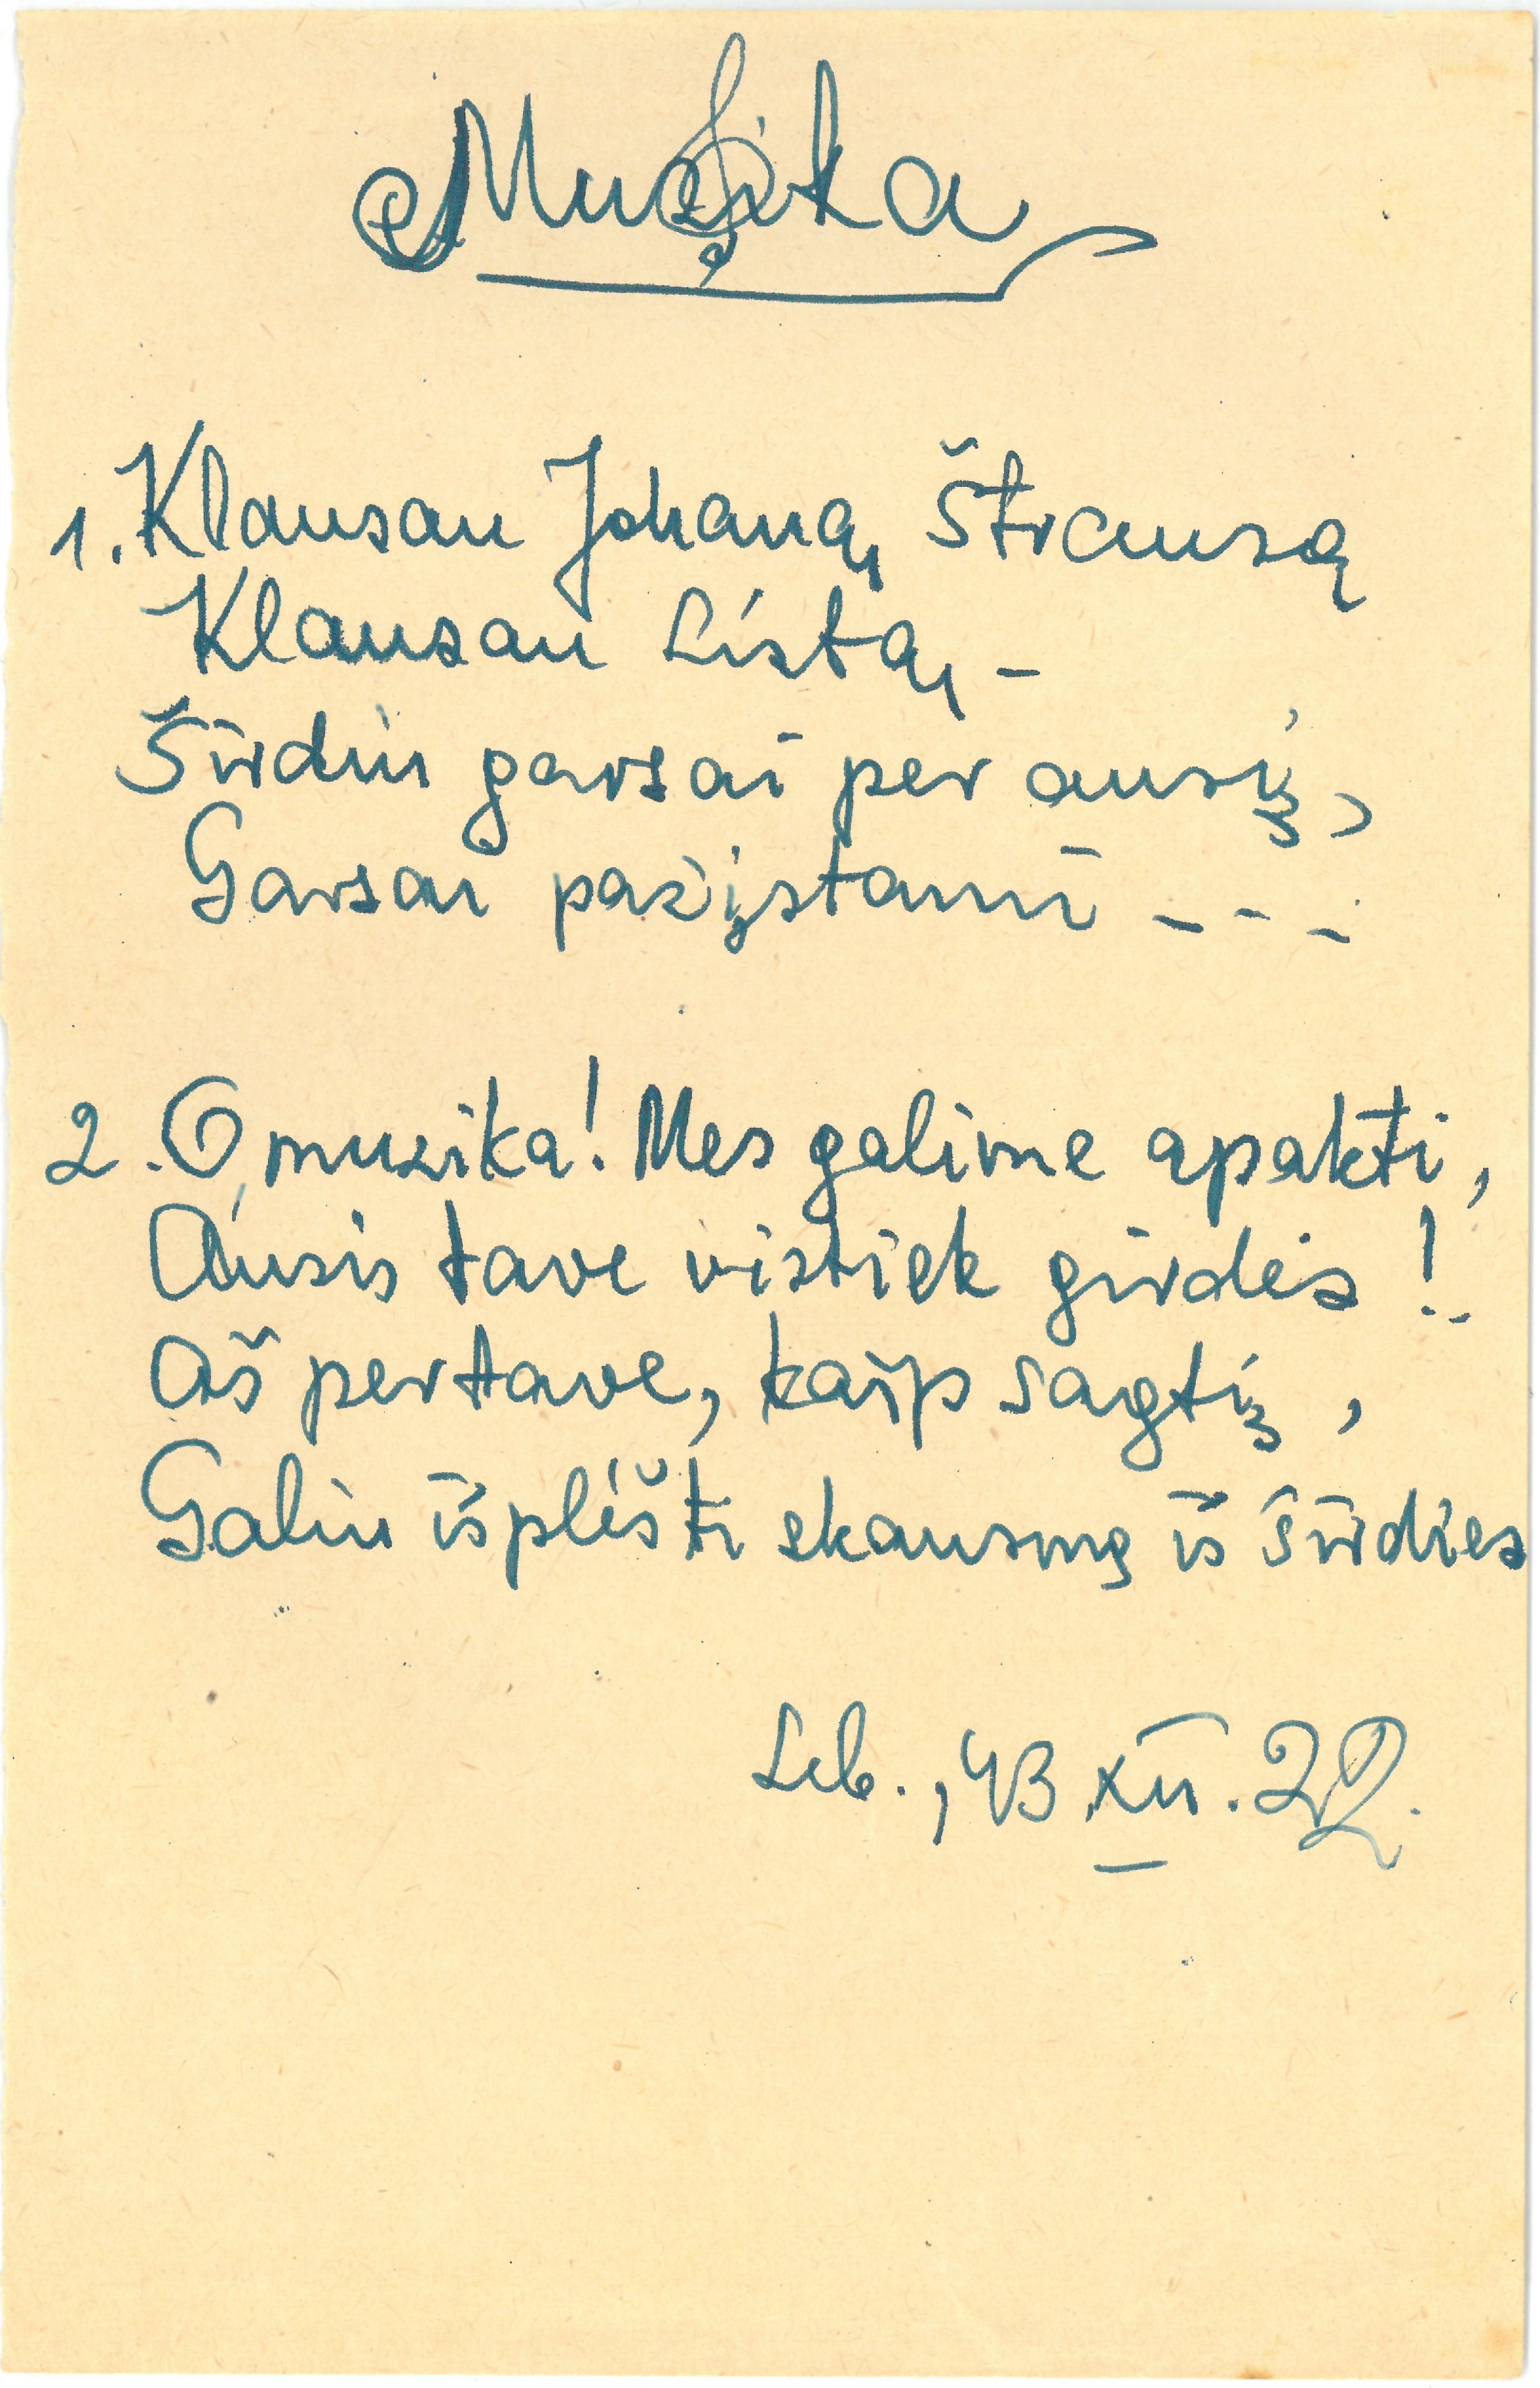 Muzika
1. Klausau Johaną Štrausą
Klausau Listą, –
Širdin garsai per ausį,
Garsai pažįstami – – –
2. O, muzika! Mes galime apakti,
Ausis tave vistiek girdės!..
Aš per tave, kaip sagtį,
Galiu išplėšti skausmą iš širdies
Leb., 43 XII. 22.